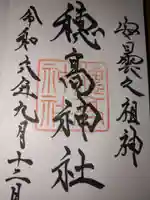 安曇祖神
穗高神社
令和六年九月十二日